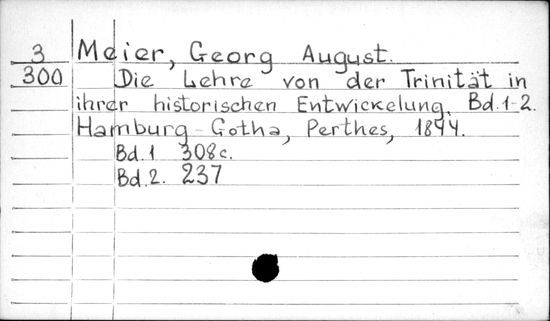 3 Meier, Georg August.
300 Die Lehre von der Trinität in
ihrer historischen Entwickelung. Bd.1-2.
Hamburg-Gotha, Perthes, 1844.
Bd.1 308c.
Bd.2. 237